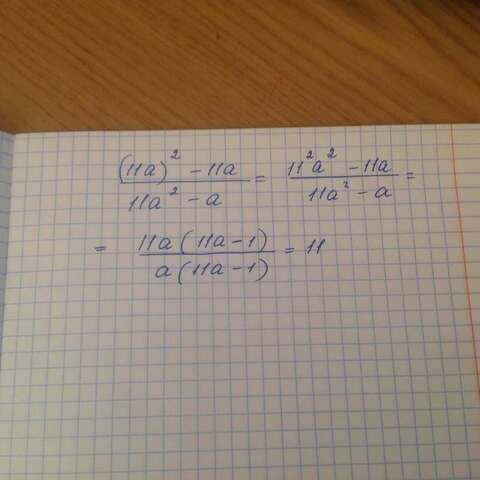 (11a)² - 11a / 11a² - a = 11²a² - 11a / 11a² - a =
= 11a(11a-1) / a(11a-1) = 11